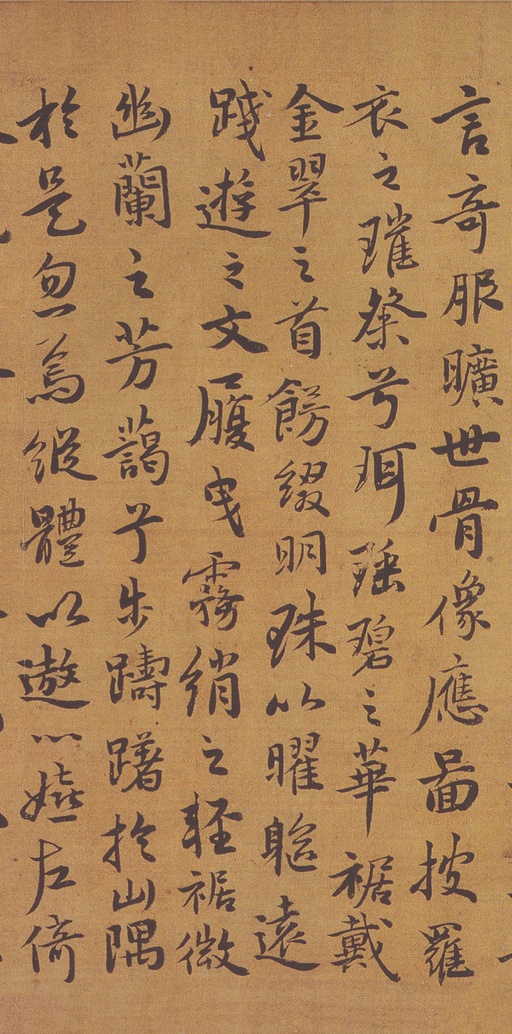 言奇服曠世骨像應啚披羅
衣之璀粲兮珥瑤碧之華裾戴
金翠之首餝綴明珠以曜軀遠
踐遊之文履曳霧綃之輕裾微
幽蘭之芳藹兮步躊躇於山隅
於是忽焉縱體以遨以嬉左倚